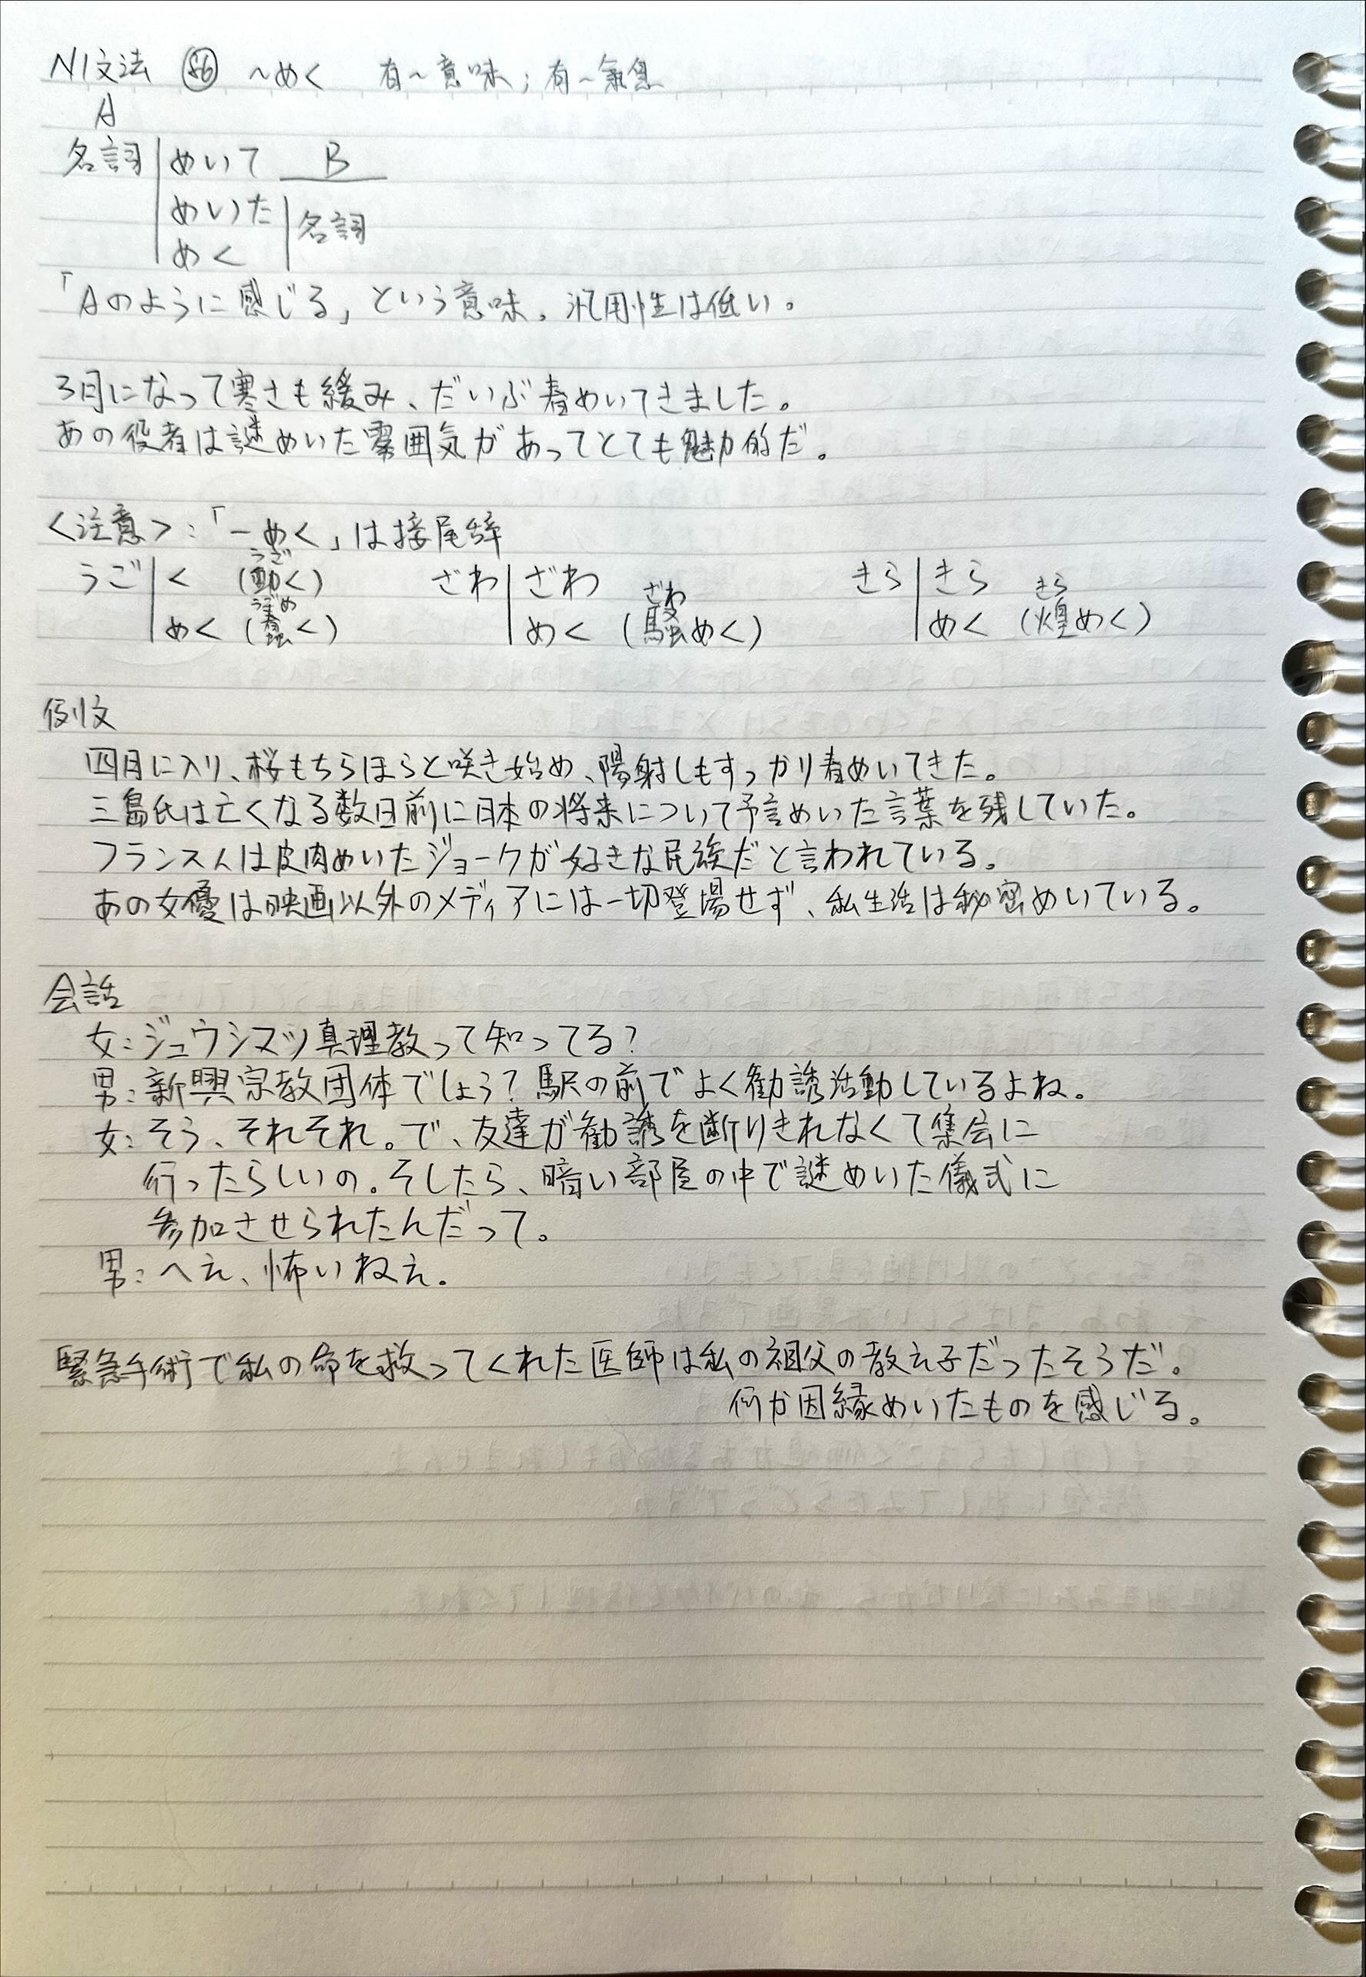 N1文法 86 ～めく 有～意味；有～氣息
A
名詞 めいて B
めいた 名詞
めく
「Aのように感じる」という意味。汎用性は低い。
3月になって寒さも緩み、だいぶ春めいてきました。
あの役者は謎めいた雰囲気があってとても魅力的だ。
<注意>:「-めく」は接尾辞
うご く (動く) うご ざわ ざわ きら きら
めく (蠢く) うごめ めく (騒めく) ざわ めく (煌めく) きら
例文
四月に入り、桜もちらほらと咲き始め、陽射しもすっかり春めいてきた。
三島氏は亡くなる数日前に日本の将来について予言めいた言葉を残していた。
フランス人は皮肉めいたジョークが好きな民族だと言われている。
あの女優は映画以外のメディアには一切登場せず、私生活は秘密めいている。
会話
女:ジュウシマツ真理教って知ってる?
男:新興宗教団体でしょう?駅の前でよく勧誘活動しているよね。
女:そう、それそれ。で、友達が勧誘を断りきれなくて集会に
行ったらしいの。そしたら、暗い部屋の中で謎めいた儀式に
参加させられたんだって。
男:へえ、怖いねえ.
緊急手術で私の命を救ってくれた医師は私の祖父の教え子だったそうだ。
何か因縁めいたものを感じる。